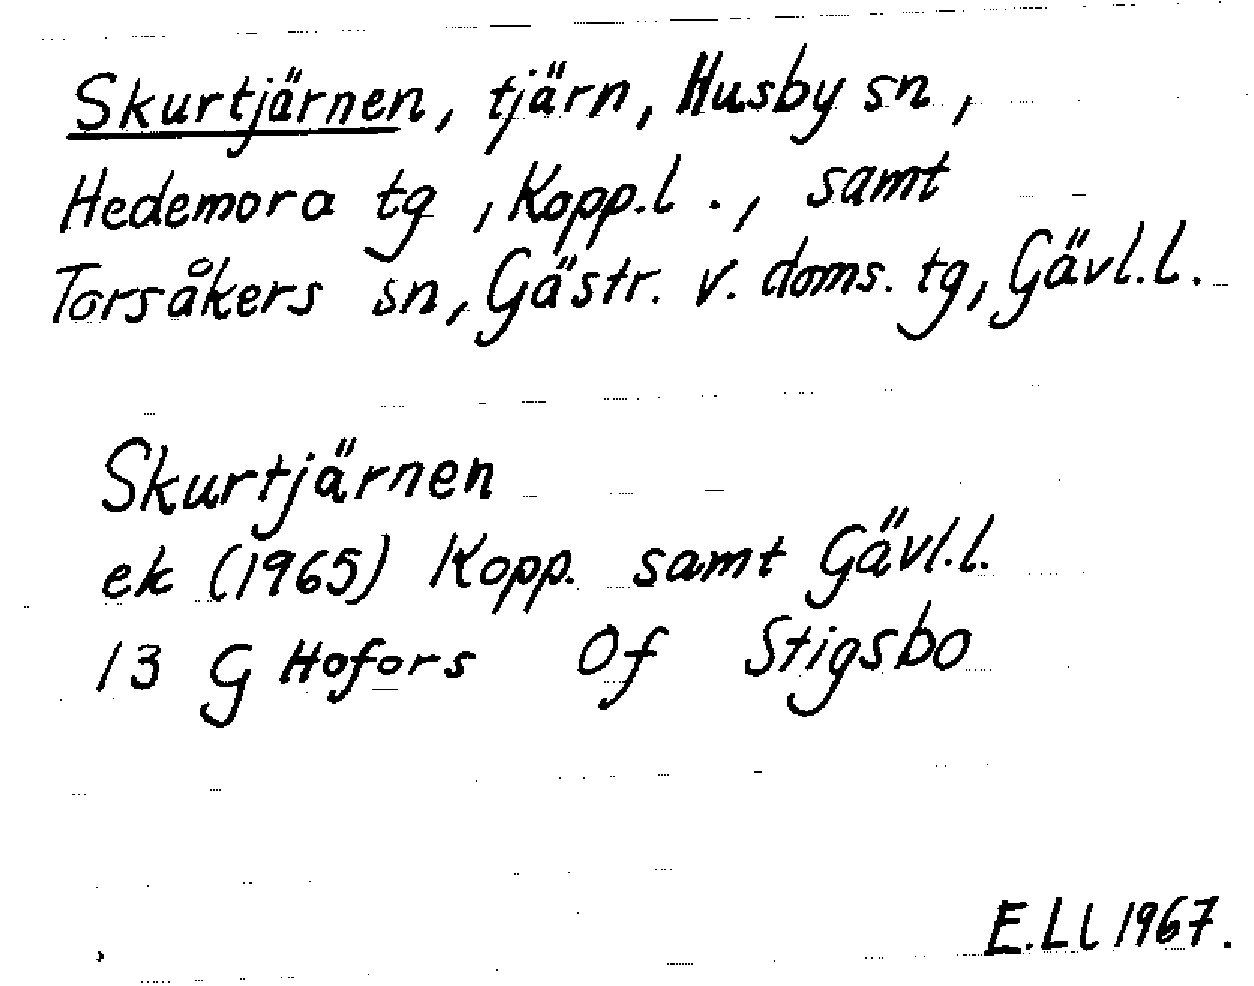 Skurtjärnen, tjärn, Husby sn,
Hedemora tg, Kopp.l., samt
Torsåkers sn, Gästr. v. doms. tg, Gävl.l.
Skurtjärnen
ek (1965) Kopp. samt Gävl.l.
13 G Hofors Of Stigsbo
E.Ll 1967.